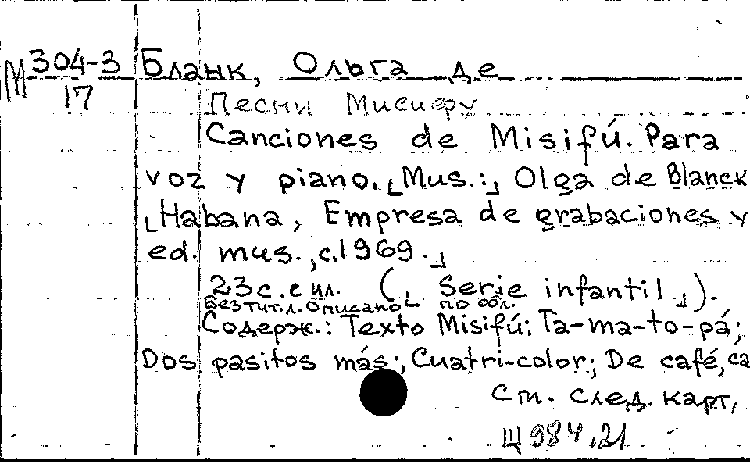 М 304-3 Бланк, Ольга де
17
Песни Мисифу
Canciones de Misifú. Para
voz y piano. [Mus.:] Olga de Blanck
[Habana, Empresa de grabaciones y
ed. mus., c.1969.]
23 с. с ил. ([Serie infantil]).
Без тит. л. Описано по обл.
Содерж.: Texto Misifú; Ta-ma-to-pá;
Dos pasitos más; Cuatri-color; De café, ca
См. след. карт.
Щ 984.21